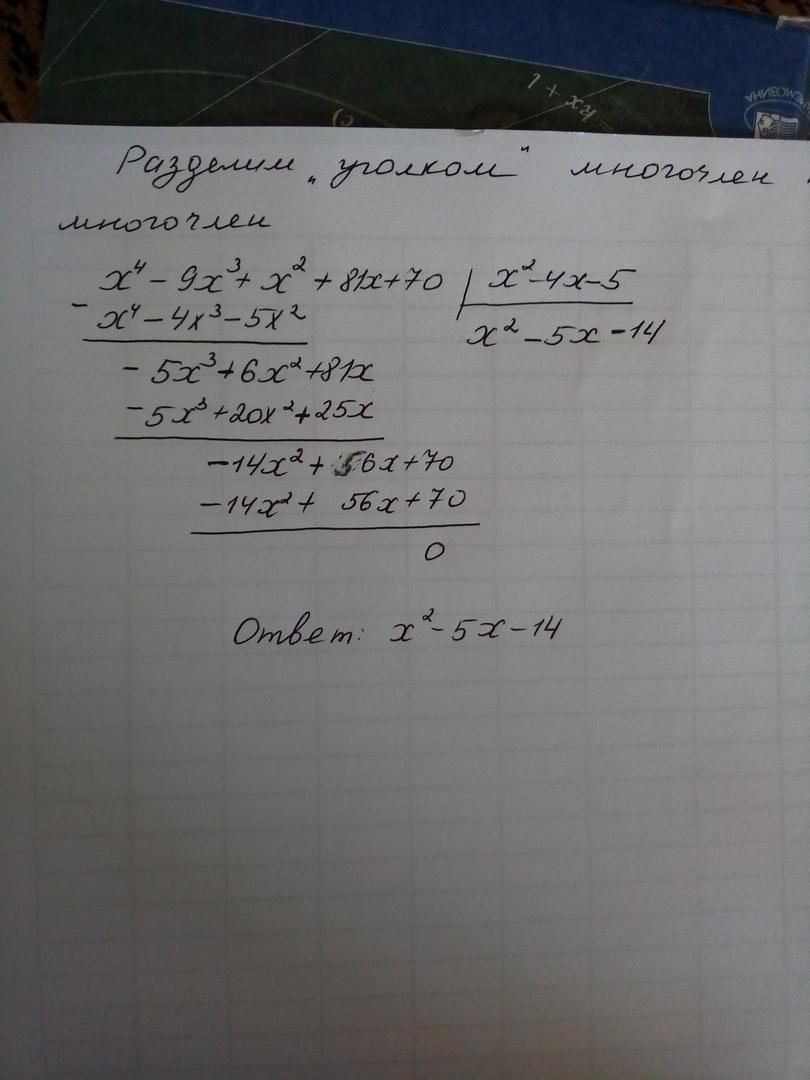 1 + xy
Разделим „уголком" многочлен
многочлен
x⁴ - 9x³ + x² + 81x + 70 | x² - 4x - 5
- x⁴ - 4x³ - 5x² x² - 5x - 14
- 5x³ + 6x² + 81x
- 5x³ + 20x² + 25x
-14x² + 56x + 70
-14x² + 56x + 70
0
Ответ: x² - 5x - 14